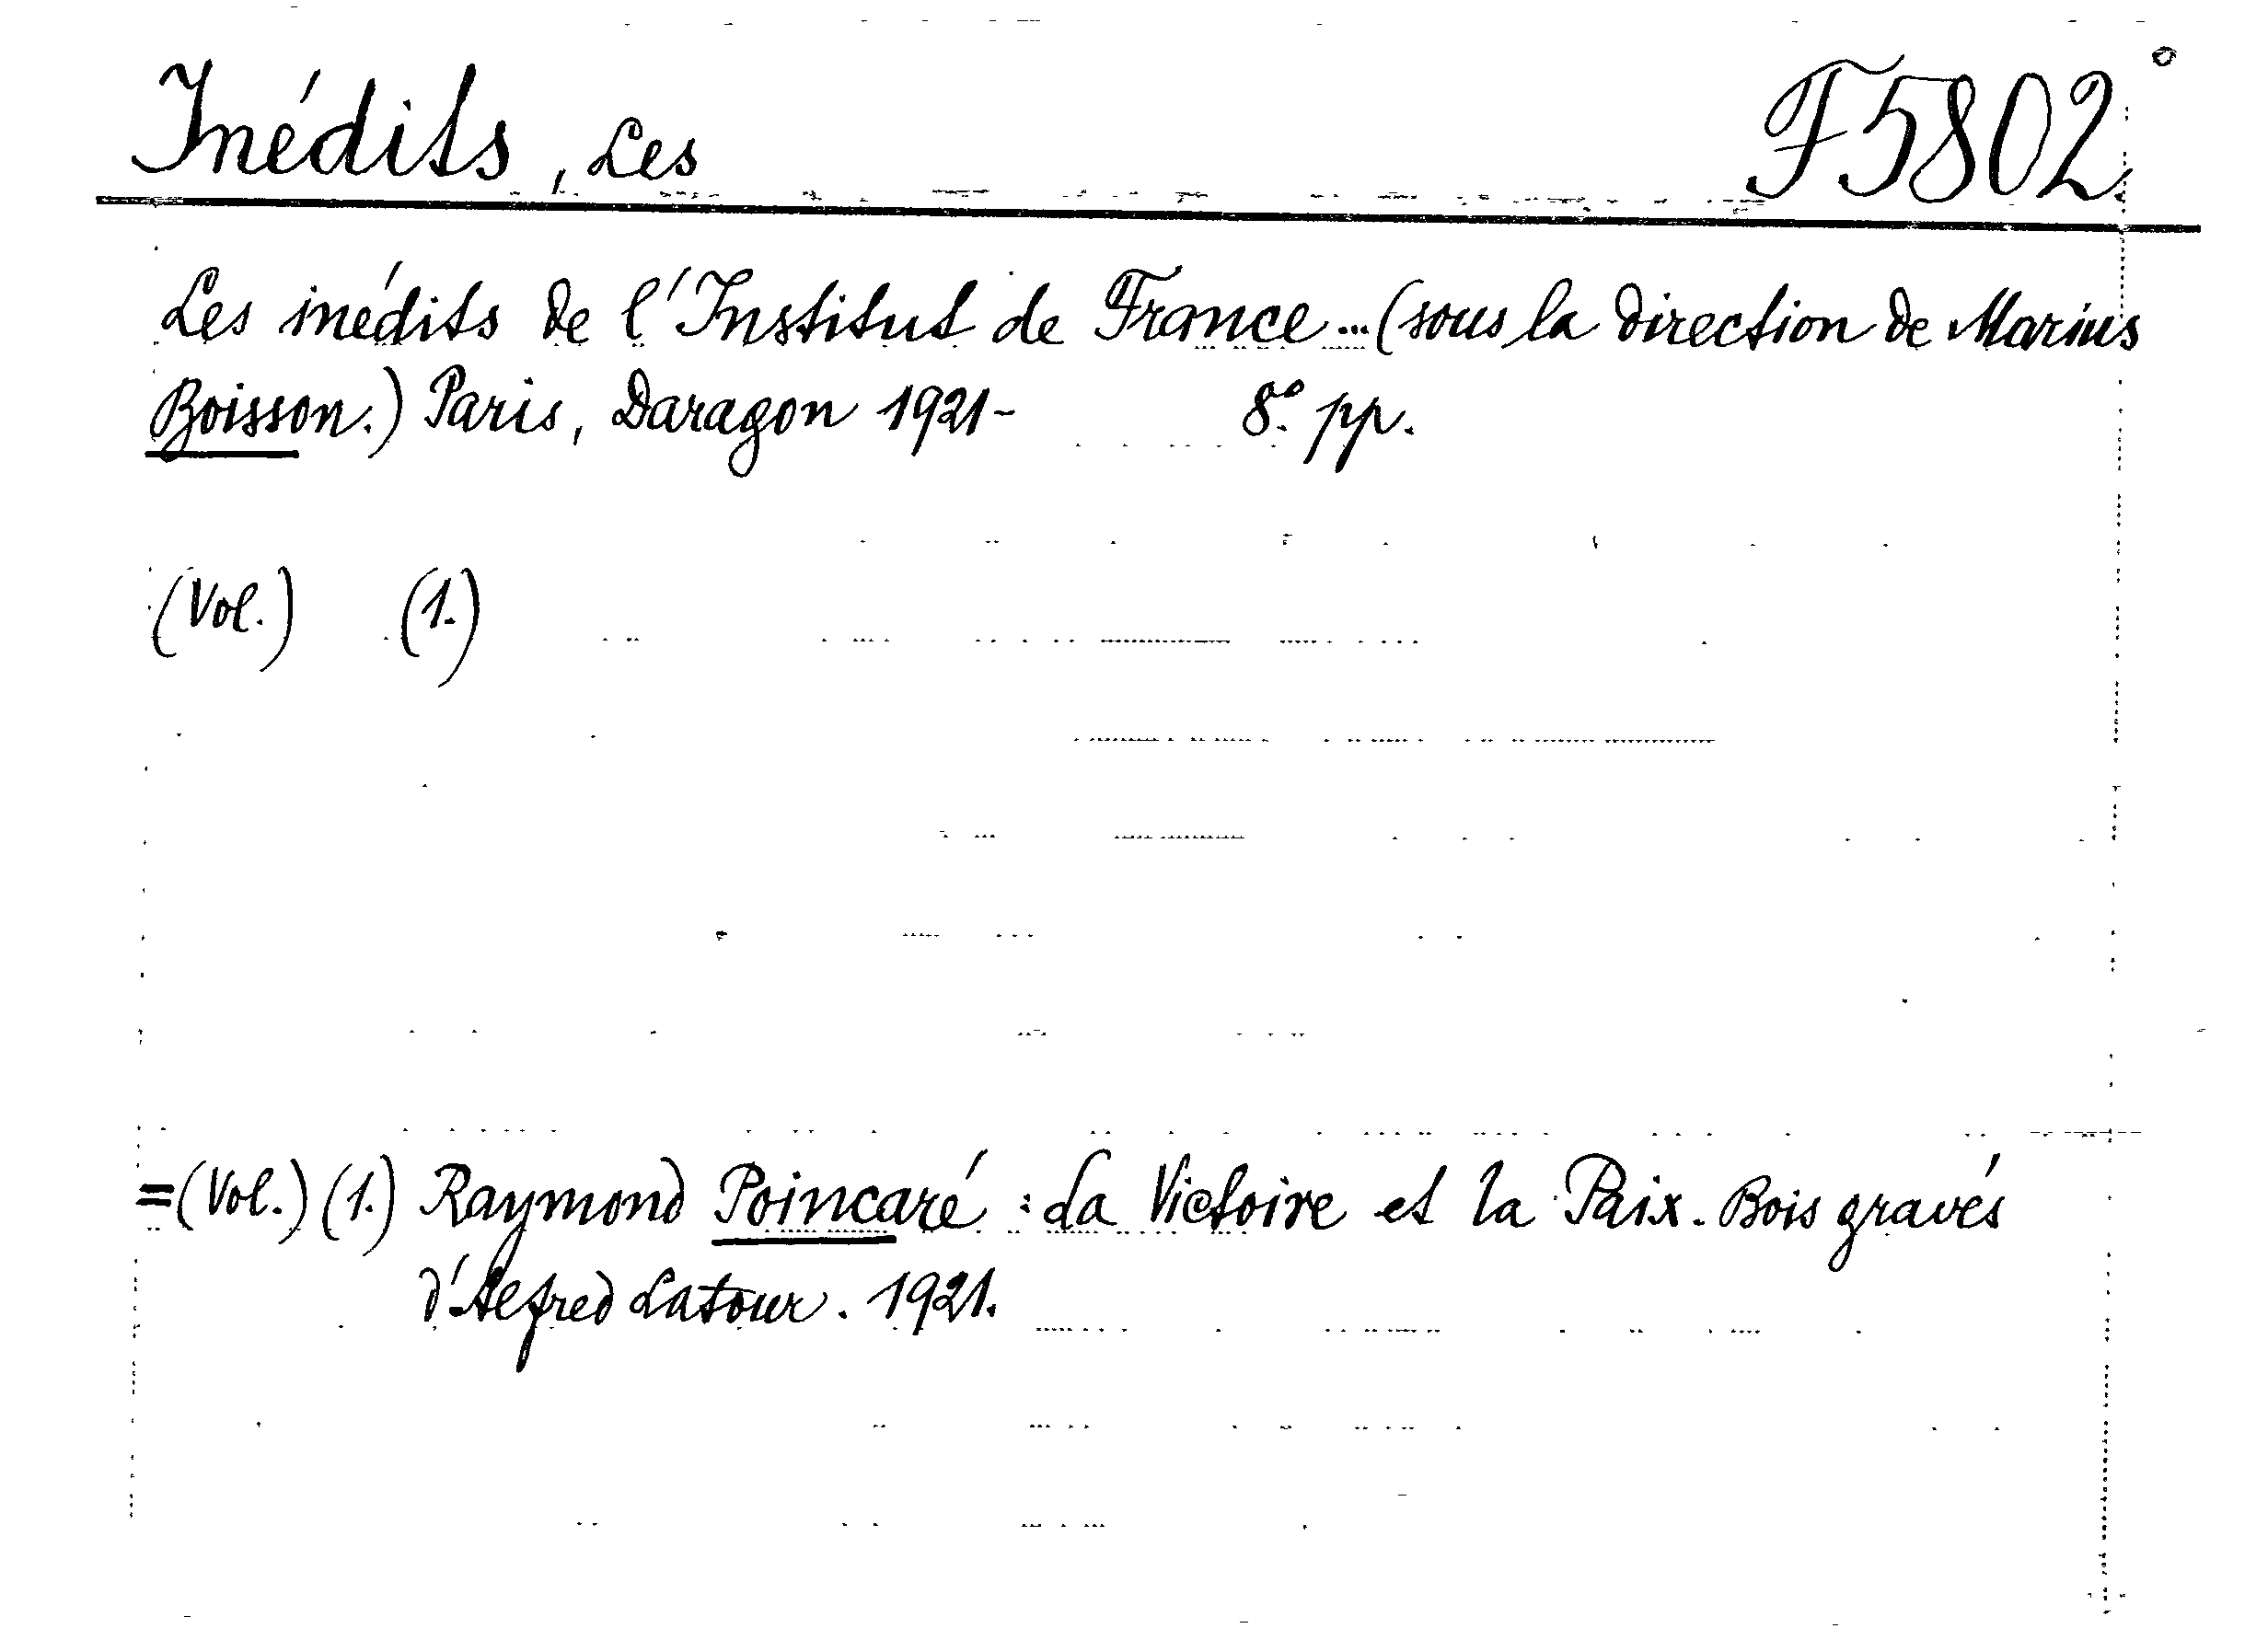 Inédits, Les F5802
Les inédits de l'Institut de France... (sous la direction de Marius
Boisson.) Paris, Daragon 1921- 8º pp.
(Vol.) (1.)
=(Vol.) (1.) Raymond Poincaré : La Victoire et la Paix. Bois gravés
d'Alfred Latour. 1921.